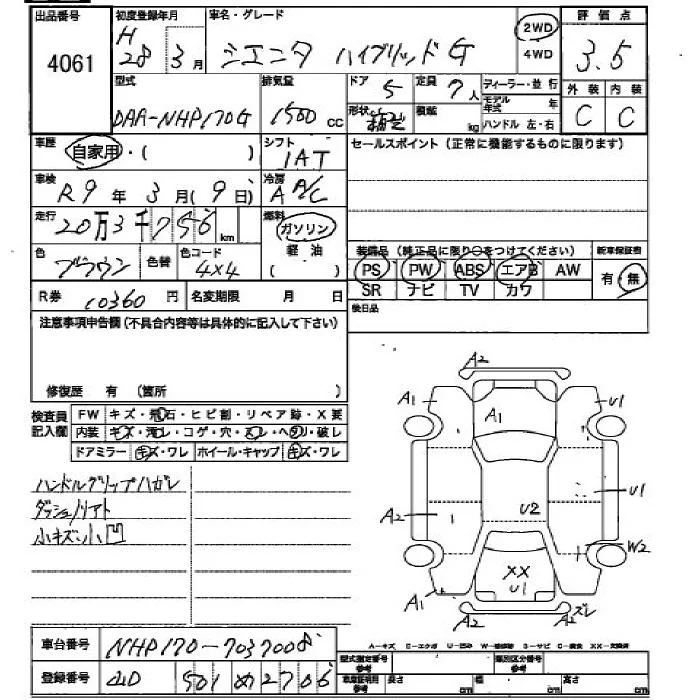 出品番号 初度登録年月 車名・グレード 評価点
4061 H28 3月 シエンタ ハイブリッドG 2WD 4WD 3.5
型式 排気量 ドア 5 定員 7人 ディーラー・並行 外装 内装
DAA-NHP170G 1500 cc 形状 積載 kg モデル年式 年 C C
ハンドル 左・右
車歴 シフト セールスポイント (正常に機能するものに限ります)
自家用・( ) IAT
車検 R9年 3月(9日) 冷房 A A/C
走行 20万3千756 km 燃料 ガソリン
色 ブラウン 色替 色コード 4X4 軽油 ( ) 装備品 (純正品に限り○をつけてください) 新車保証書
PS PW ABS エアB AW 有・無
R券 10360円 名変期限 月 日 SR ナビ TV カワ
注意事項申告欄(不具合内容等は具体的に記入して下さい) 後日品
修復歴 有 (箇所 )
検査員記入欄 FW キズ・飛石・ヒビ割・リペア跡・X要
内装 キズ・汚レ・コゲ・穴・スレ・ヘタリ・破レ
ドアミラー キズ・ワレ ホイール・キャップ キズ・ワレ
ハンドルグリップハガレ
ダッシュノリアト
小キズ・小凹
A2
A1 A1 U1
U1
A2 U2
W2
XX
U1
A1 A2 ズレ
A-キズ E-エクボ U-凹み W-補修跡 S-サビ C-腐食 XX-交換済
車台番号 NHP170-7037008
登録番号 山口 501 め 2706
型式指定番号 参考 類別区分番号 参考
車庫証明用 参考 長さ cm 幅 cm 高さ cm